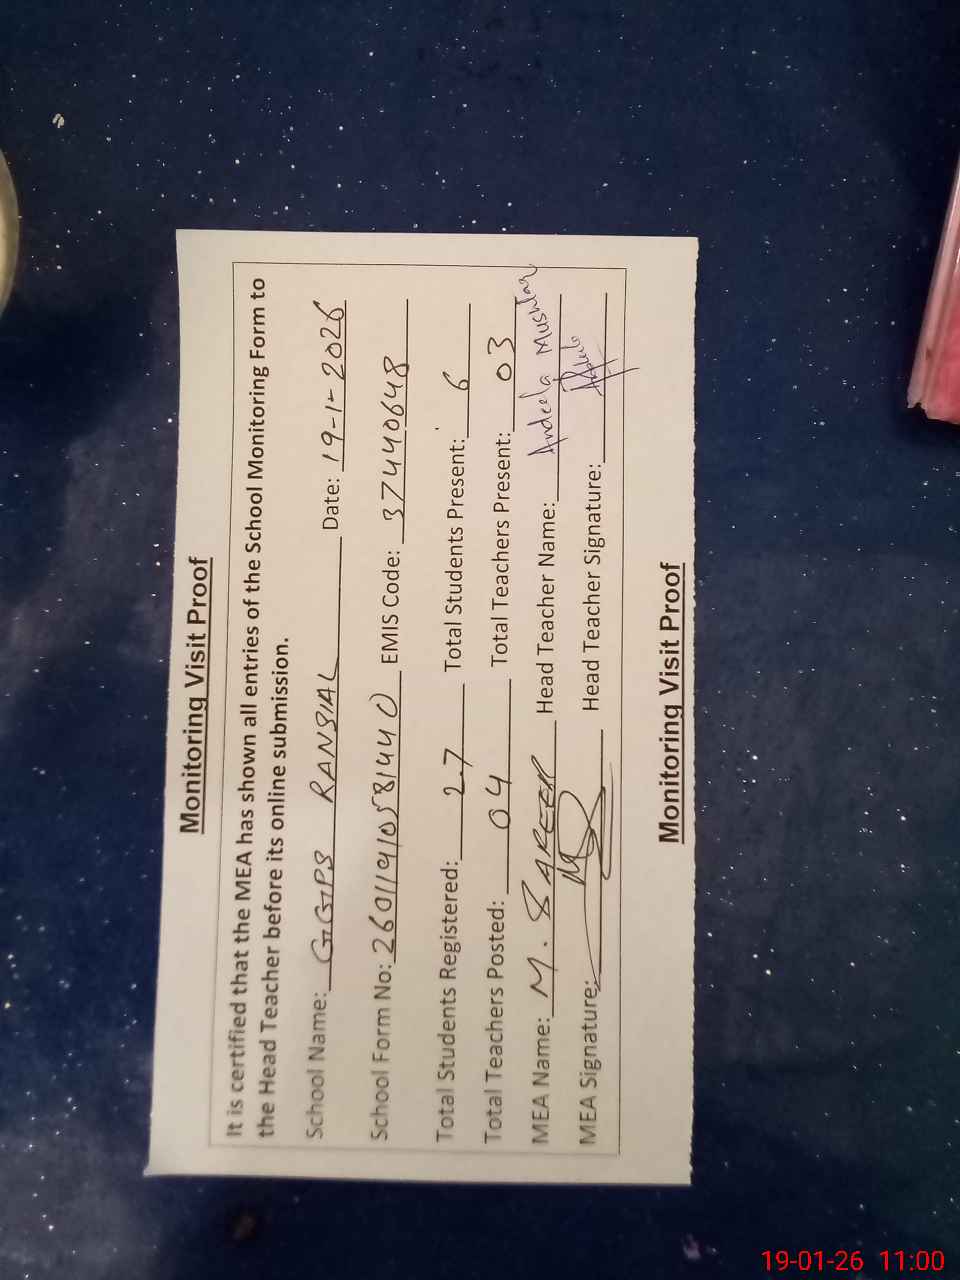 Monitoring Visit Proof
It is certified that the MEA has shown all entries of the School Monitoring Form to
the Head Teacher before its online submission.
School Name: GGPS RANSIAL Date: 19-1-2026
School Form No: 26011910581440 EMIS Code: 37440648
Total Students Registered: 27 Total Students Present: 6
Total Teachers Posted: 04 Total Teachers Present: 03
MEA Name: M. SAFEER Head Teacher Name: Andeela Mushtaq
MEA Signature: Head Teacher Signature:
Monitoring Visit Proof
19-01-26 11:00